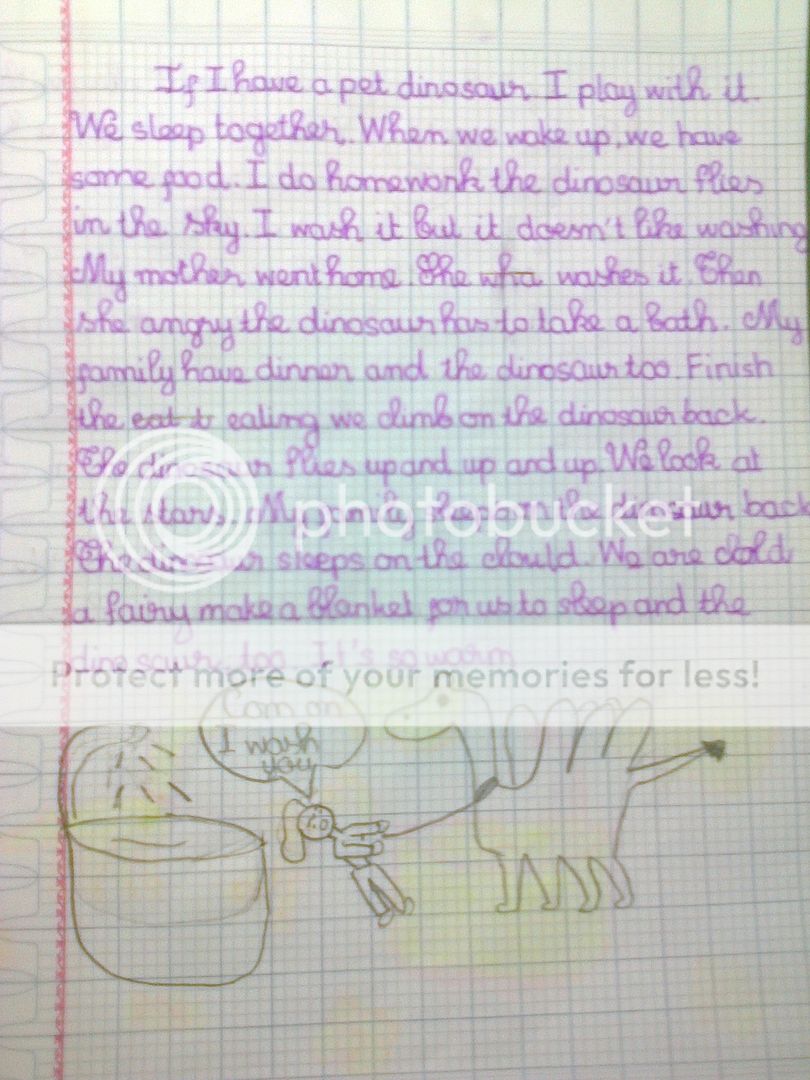 If I have a pet dinosaur I play with it.
We sleep together. When we wake up, we have
some food. I do homework the dinosaur flies
in the sky. I wash it but it doesn't like washing
My mother went home. She wha washes it. Then
she angry the dinosaur has to take a bath. My
family have dinner and the dinosaur too. Finish
the eat t eating we climb on the dinosaur back.
The dinosaur flies up and up and up. We look at
the stars. My family sleep on the dinosaur back
The dinosaur sleeps on the clould. We are clold
a fairy make a blanket for us to sleep and the
dinosaur too. It's so warm
photobucket
Protect more of your memories for less!
Com on
I wash
you